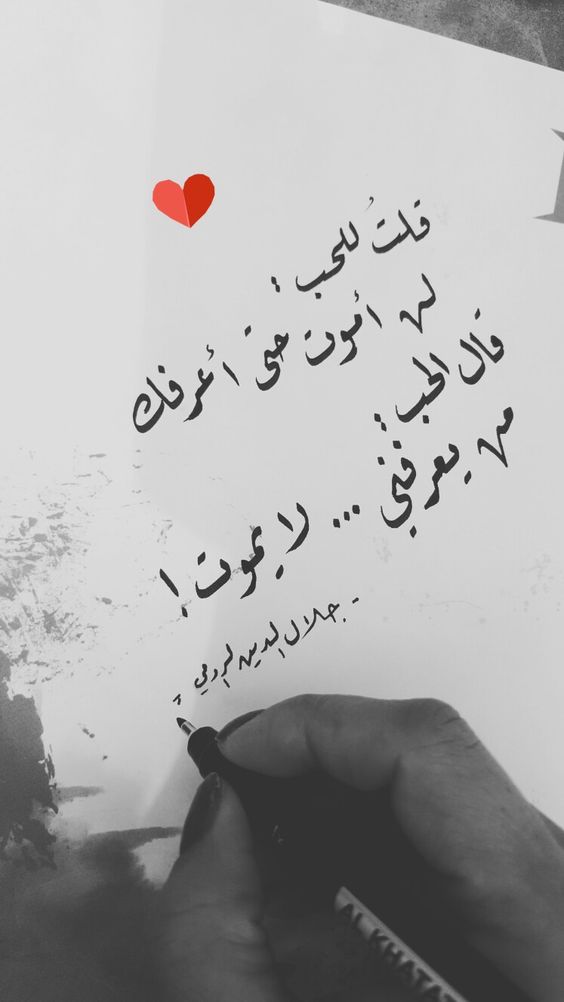 قلتُ للحب :
لن أموت حتى أعرفك
قال الحب :
من يعرفني ... لا يموت !
- جلال الدين الرومي
AL KHATA